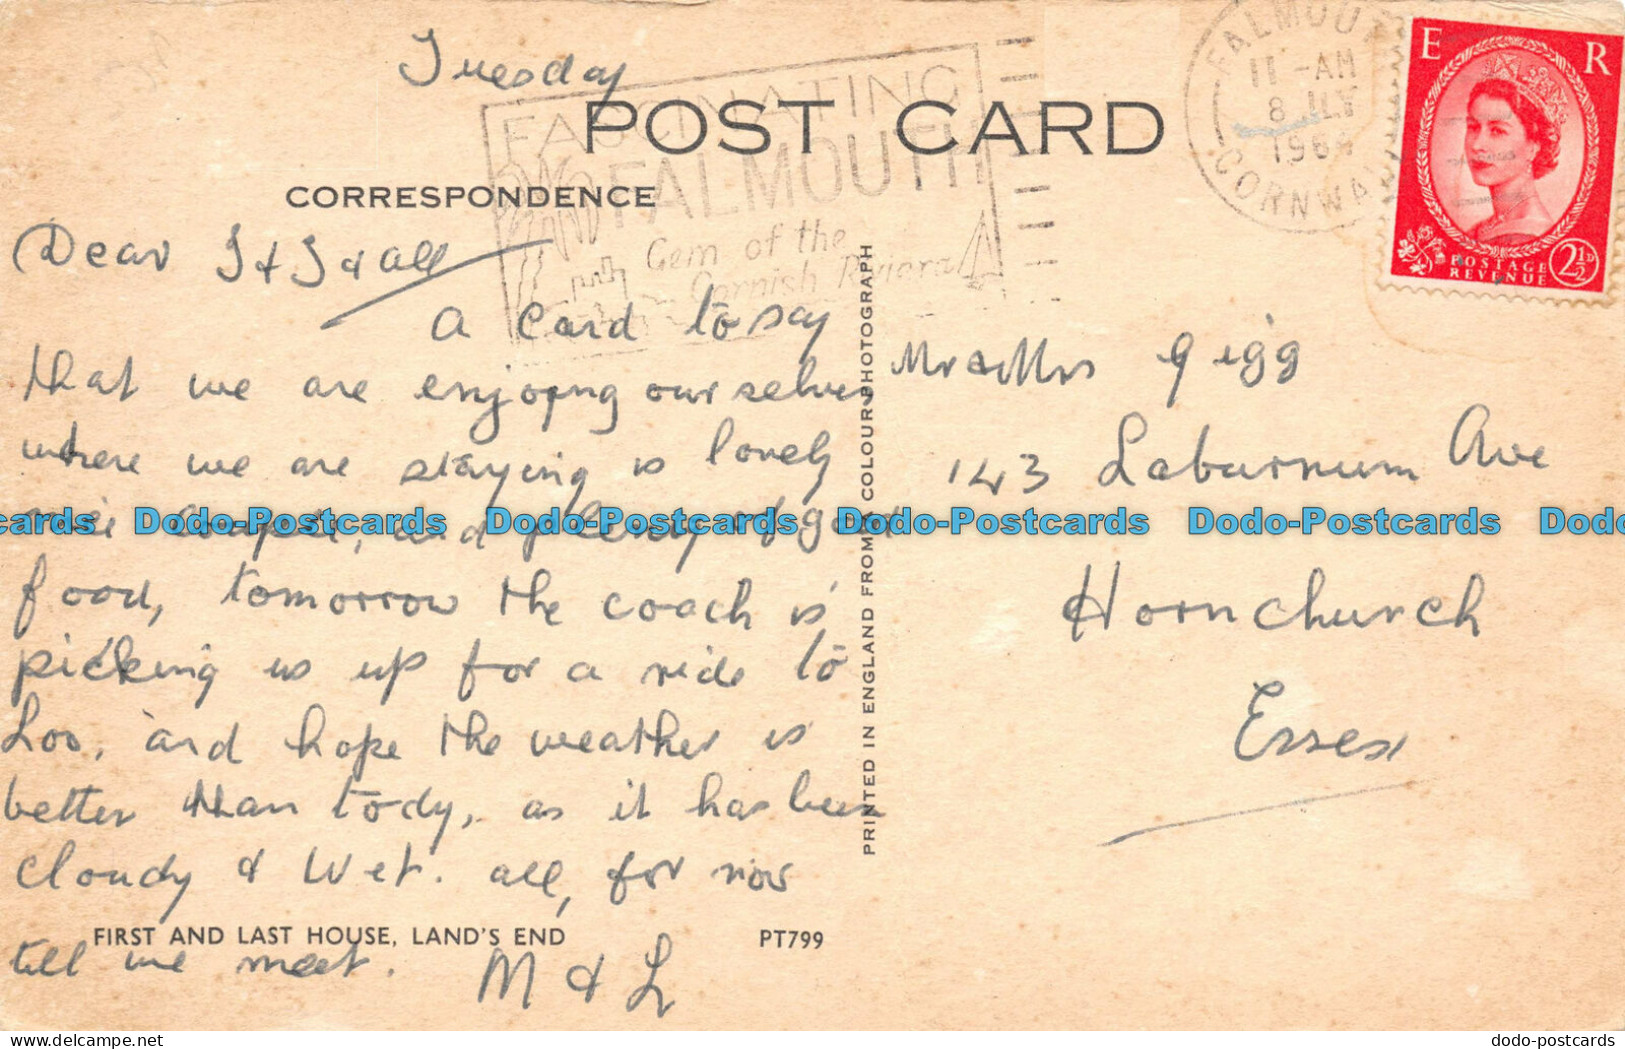 Tuesday
FASCINATING
FALMOUTH
Gem of the
Cornish Riviera
FALMOUTH
11 - AM
8 JLY
196
CORNWALL
E R
POSTAGE
REVENUE
2½D
POST CARD
CORRESPONDENCE
Dear J & J & all
A card to say
that we are enjoying ourselves
where we are staying is lovely
nice couple, and plenty of good
food, tomorrow the coach is
picking us up for a ride to
Loo, and hope the weather is
better than tody, as it has been
cloudy & wet. all, for now
till we meet. M & L
FIRST AND LAST HOUSE, LAND'S END PT799
PRINTED IN ENGLAND FROM A COLOUR PHOTOGRAPH
Mr & Mrs Gigg
143 Laburnum Ave
Hornchurch
Essex
cards Dodo-Postcards Dodo-Postcards Dodo-Postcards Dodo-Postcards Dodo
dodo-postcards